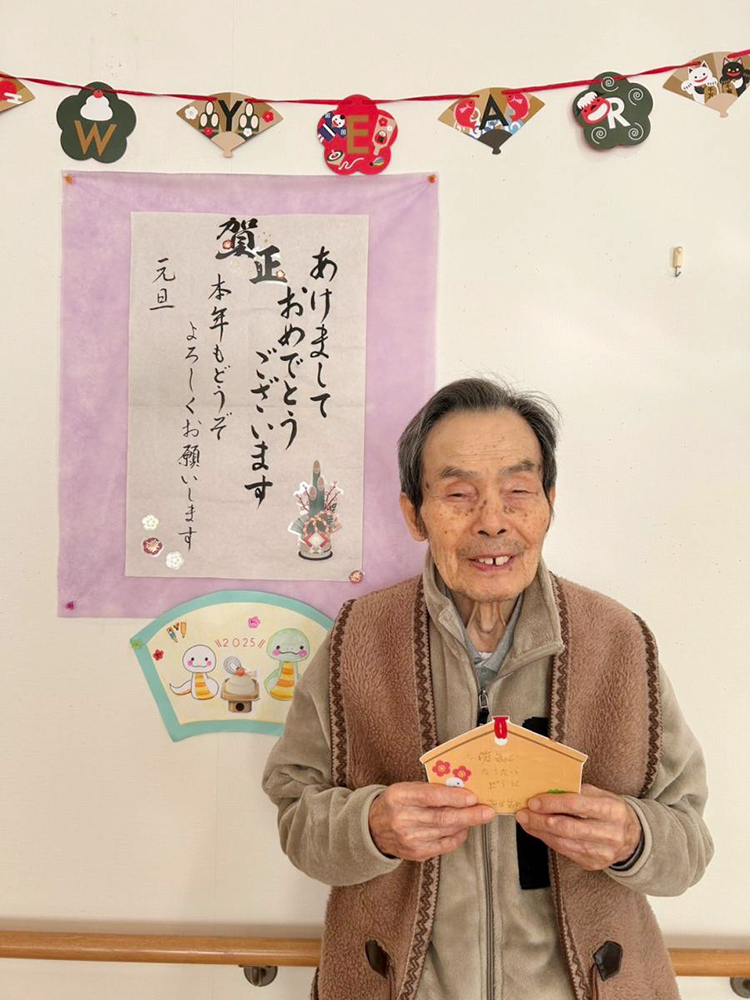 W Y E A R
賀正
あけまして
おめでとう
ございます
本年もどうぞ
よろしくお願いします
元旦
2025